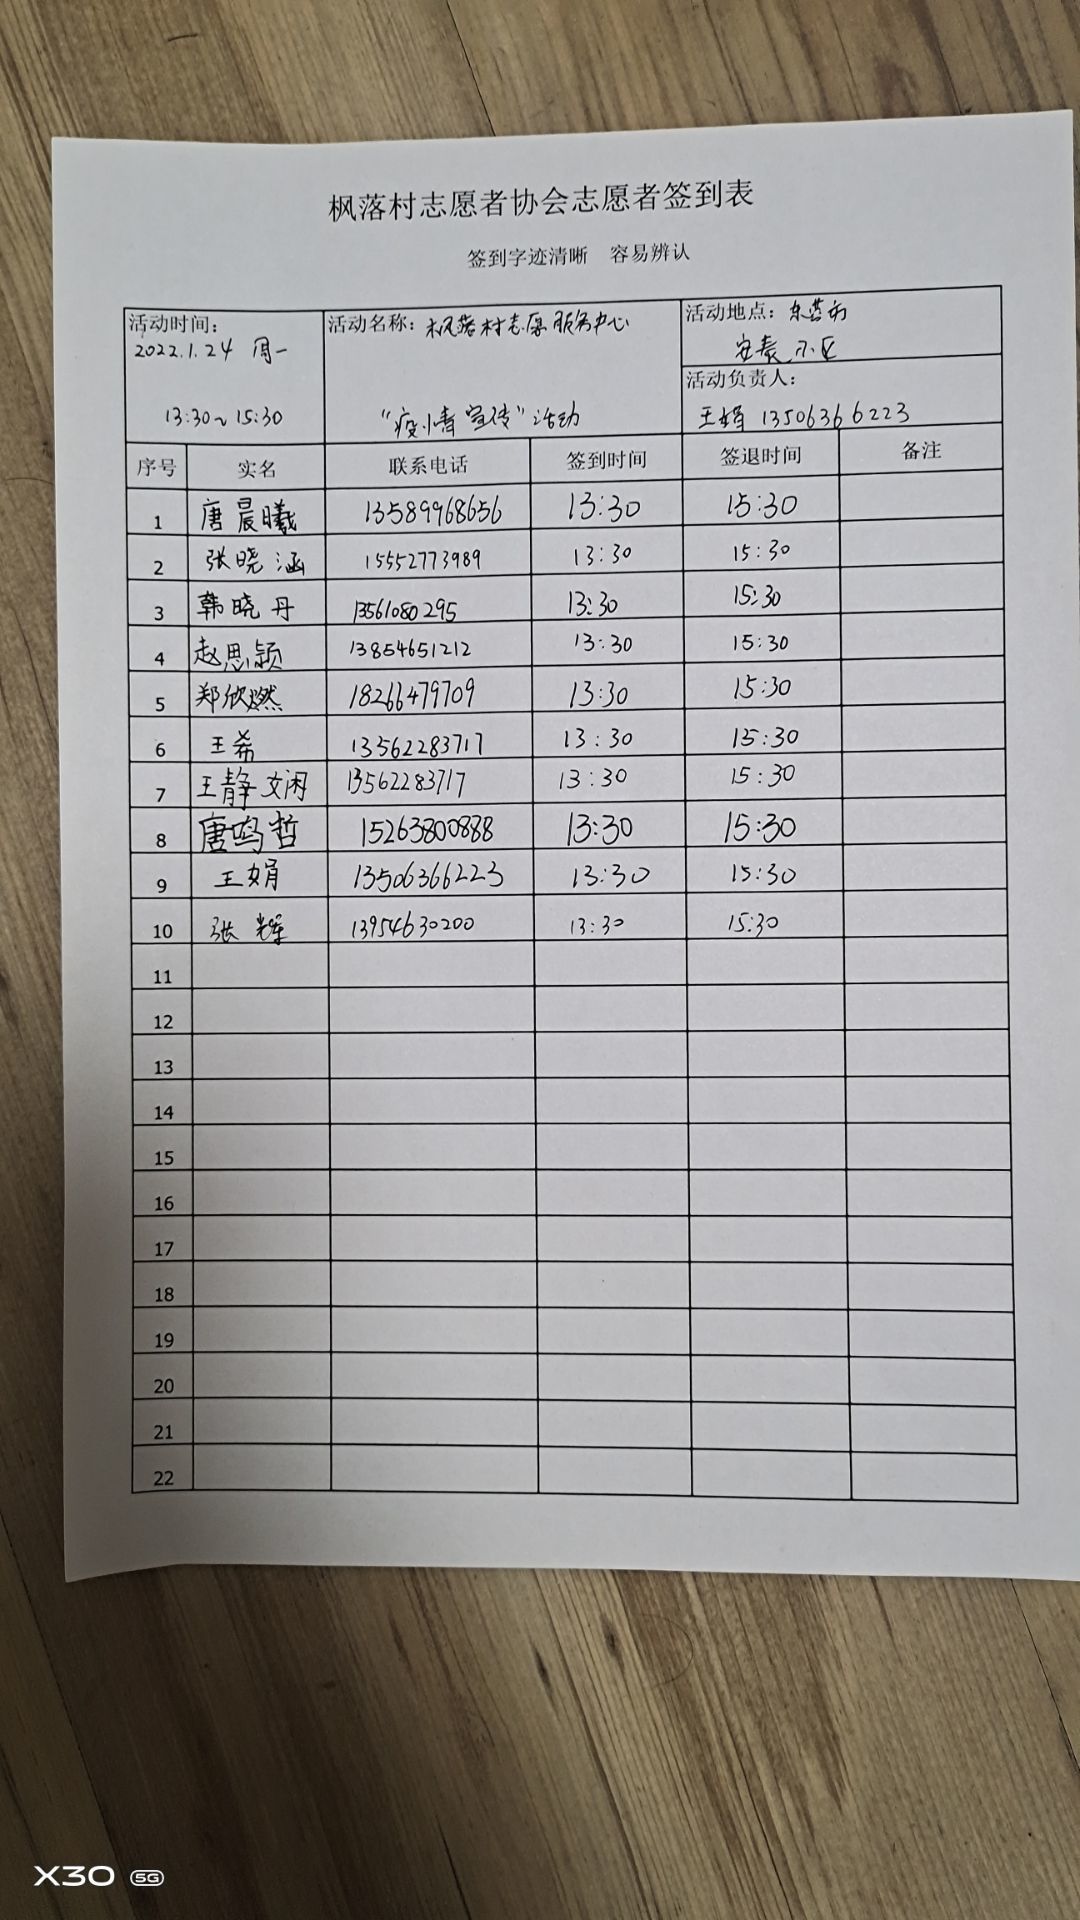 枫落村志愿者协会志愿者签到表
签到字迹清晰 容易辨认
活动时间：
2022.1.24 周一
13:30~15:30
活动名称：枫落村志愿服务中心
“疫情宣传”活动
活动地点：东营市
安泰小区
活动负责人：
王娟 13506366223
序号 实名 联系电话 签到时间 签退时间 备注
1 唐晨曦 13589968656 13:30 15:30
2 张晓涵 15552773989 13:30 15:30
3 韩晓丹 13561080295 13:30 15:30
4 赵思颖 13854651212 13:30 15:30
5 郑欣燃 18266479709 13:30 15:30
6 王希 13562283717 13:30 15:30
7 王静娴 13562283717 13:30 15:30
8 唐鸣哲 15263800888 13:30 15:30
9 王娟 13506366223 13:30 15:30
10 张辉 13954630200 13:30 15:30
11
12
13
14
15
16
17
18
19
20
21
22
X30 5G